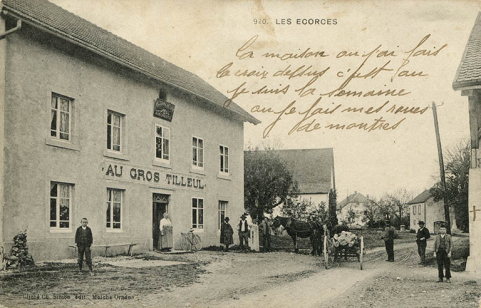 940. LES ECORCES
la maison ou j'ai fais
la croix dessus c'est ou
je suis la semaine
ou je fais mes roues
de montres
AU GROS TILLEUL
Cliché Ch. Simon édit. Maîche